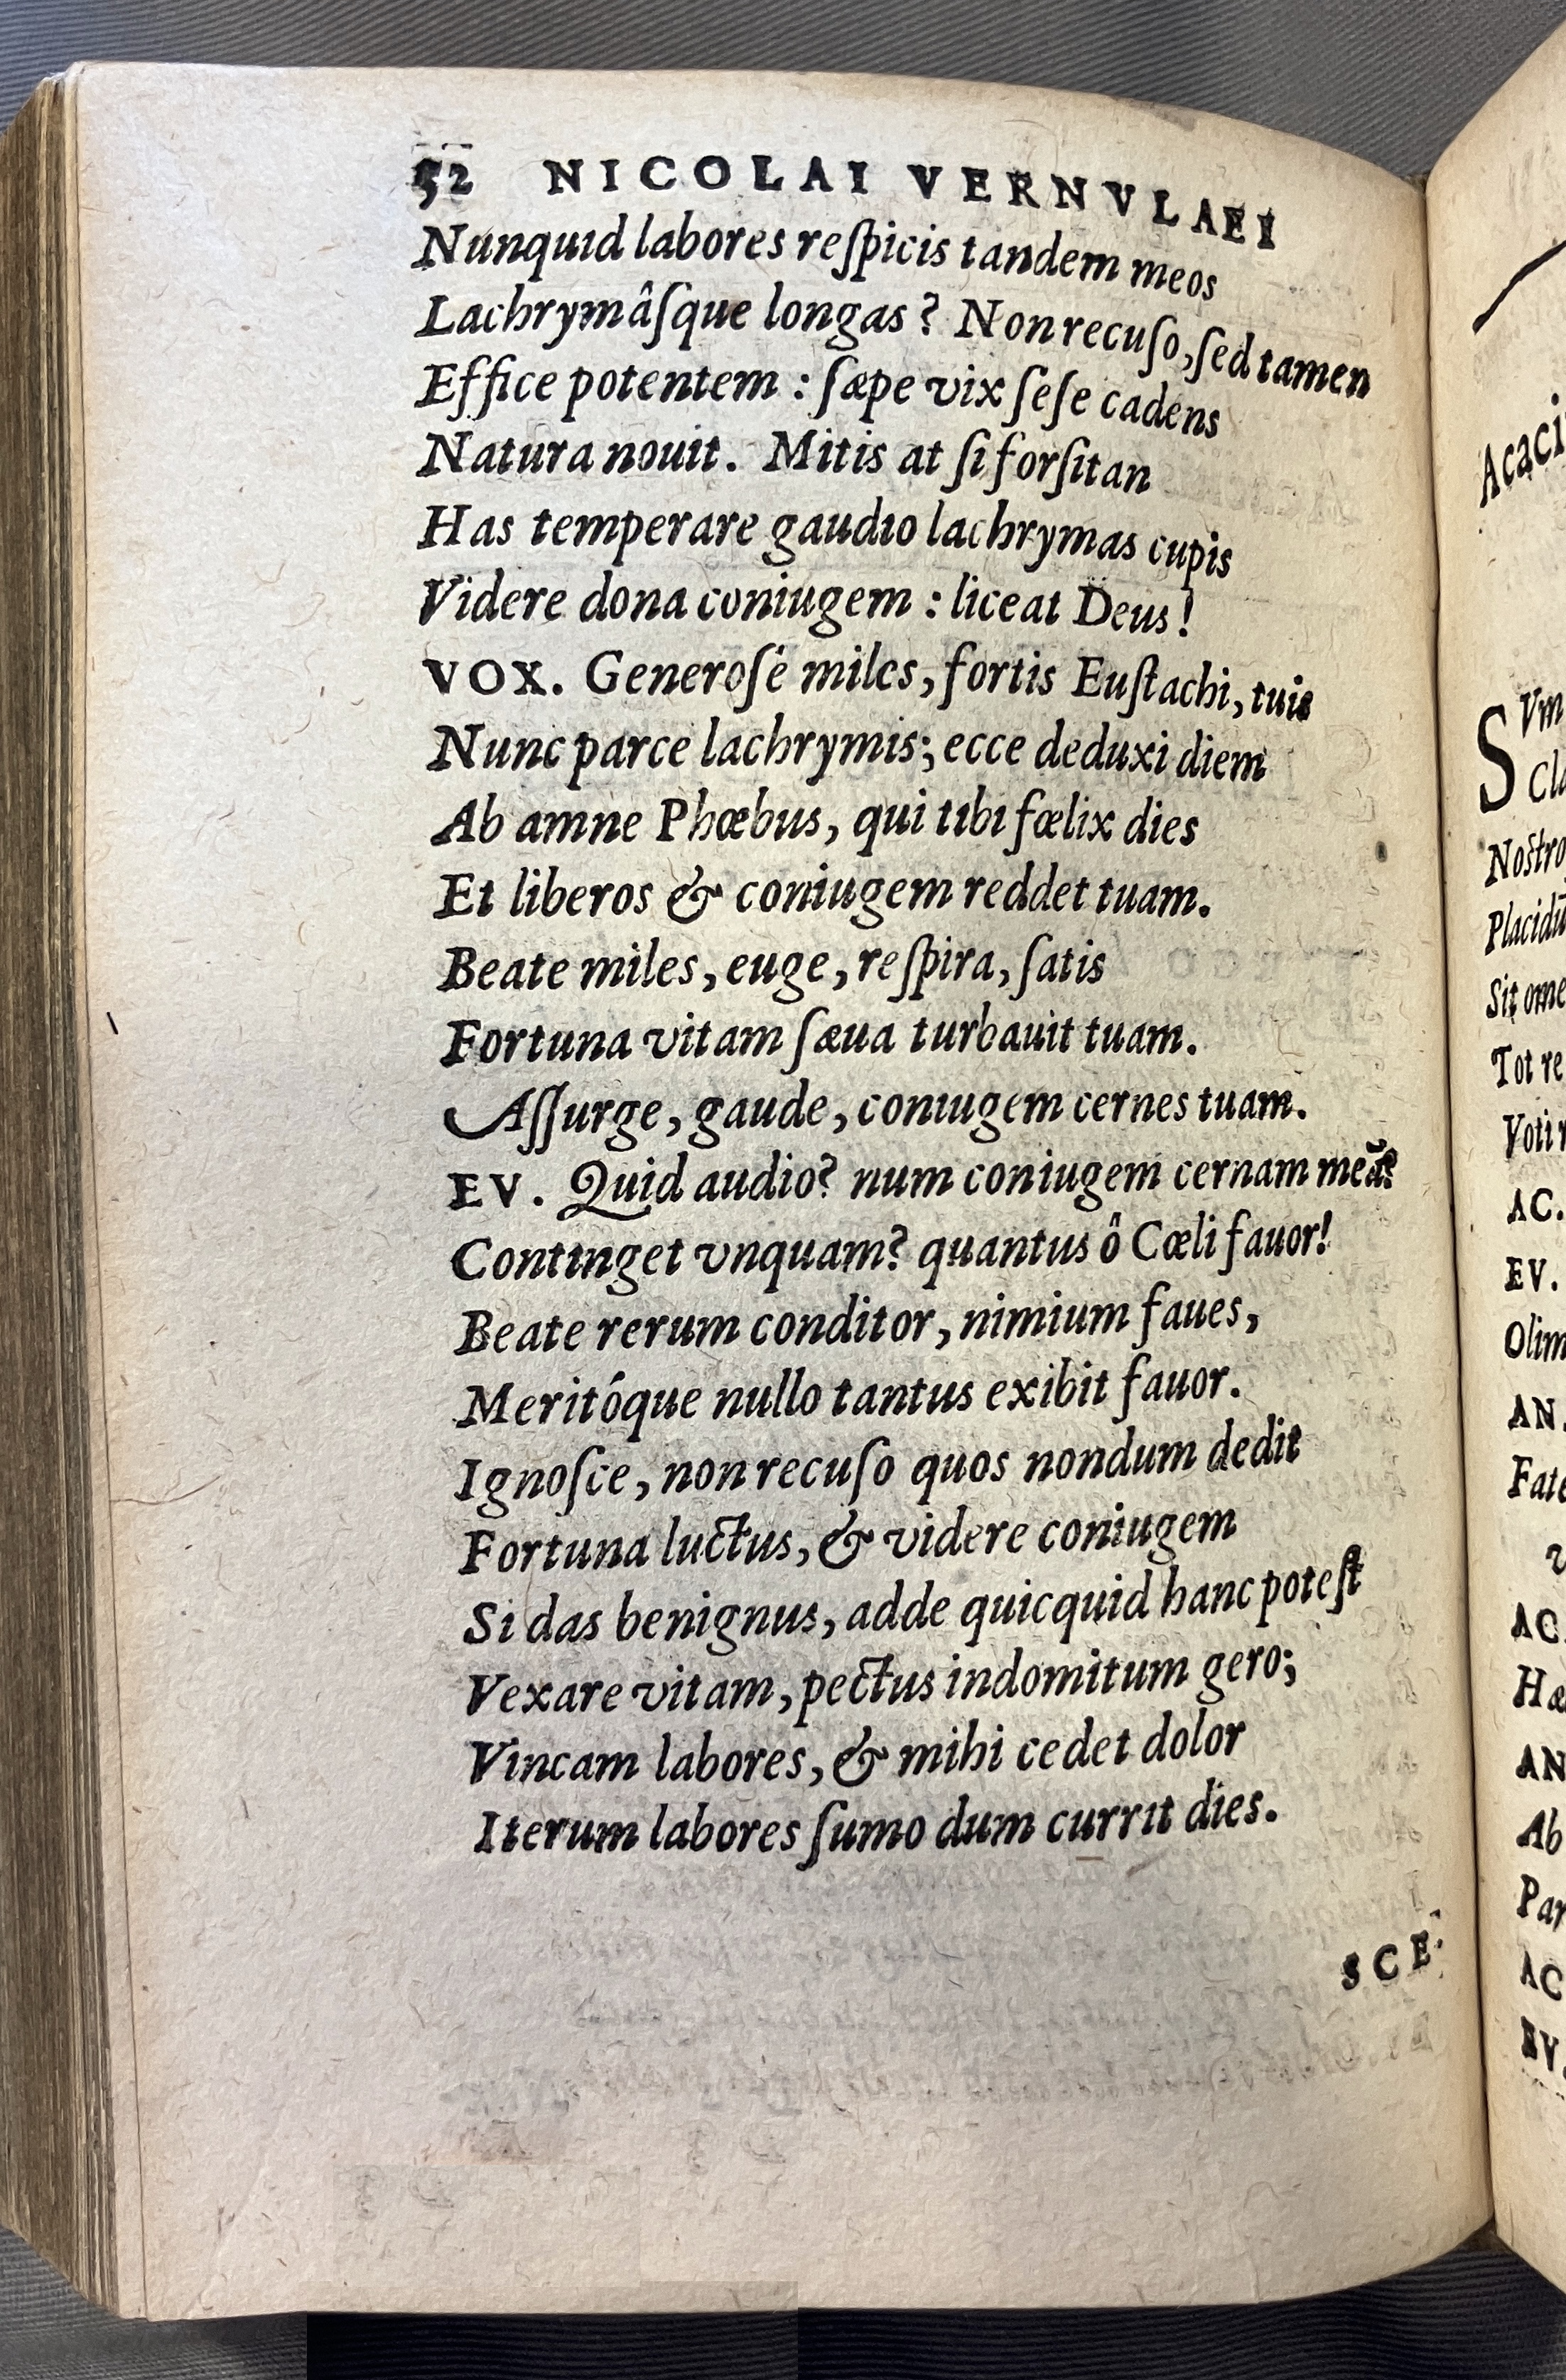 52 NICOLAI VERNVLAEI
Nunquid labores reſpicis tandem meos
Lachrymâſque longas? Non recuſo, ſed tamen
Effice potentem : ſæpe vix ſeſe cadens
Natura nouit. Mitis at ſi forſitan
Has temperare gaudio lachrymas cupis
Videre dona coniugem : liceat Deus!
VOX. Generoſe miles, fortis Euſtachi, tuis
Nunc parce lachrymis; ecce deduxi diem
Ab amne Phœbus, qui tibi fœlix dies
Et liberos & coniugem reddet tuam.
Beate miles, euge, reſpira, ſatis
Fortuna vitam ſæua turbauit tuam.
Aſſurge, gaude, coniugem cernes tuam.
EV. Quid audio? num coniugem cernam meã?
Continget vnquam? quantus ô Cœli fauor!
Beate rerum conditor, nimium faues,
Meritóque nullo tantus exibit fauor.
Ignoſce, non recuſo quos nondum dedit
Fortuna luctus, & videre coniugem
Si das benignus, adde quicquid hanc poteſt
Vexare vitam, pectus indomitum gero;
Vincam labores, & mihi cedet dolor
Iterum labores ſumo dum currit dies.
SCE-
Acaci
SVm
Cla
Noſtro
Placidū
Sit ome
Tot re
Voti
AC.
EV.
Olim
AN.
Fate
v
AC
Hæ
AN
Ab
Par
AC
EV.